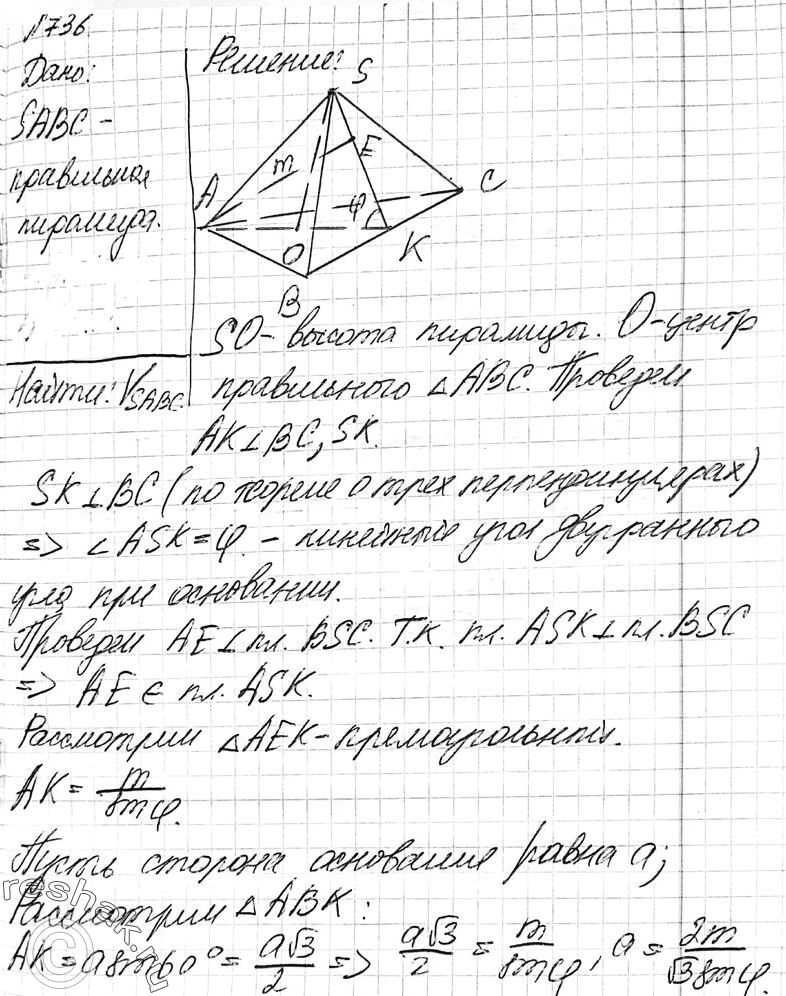 №736
Дано:
SABC –
правильная
пирамида.
Найти: V_SABC
Решение:
S
E
m
A
φ
C
O
K
B
SO - высота пирамиды. O - центр
правильного △ABC. Проведем
AK⊥BC, SK.
SK⊥BC (по теореме о трех перпендикулярах)
=> ∠ASK=φ - линейный угол двугранного
угла при основании.
Проведем AE⊥пл. BSC. Т.к. пл. ASK⊥пл. BSC
=> AE ∈ пл. ASK.
Рассмотрим △AEK - прямоугольный.
AK = m/sinφ.
Пусть сторона основания равна a;
Рассмотрим △ABK:
AK = a sin60° = a√3/2 => a√3/2 = m/sinφ, a = 2m/√3sinφ.
reshak.ru
©